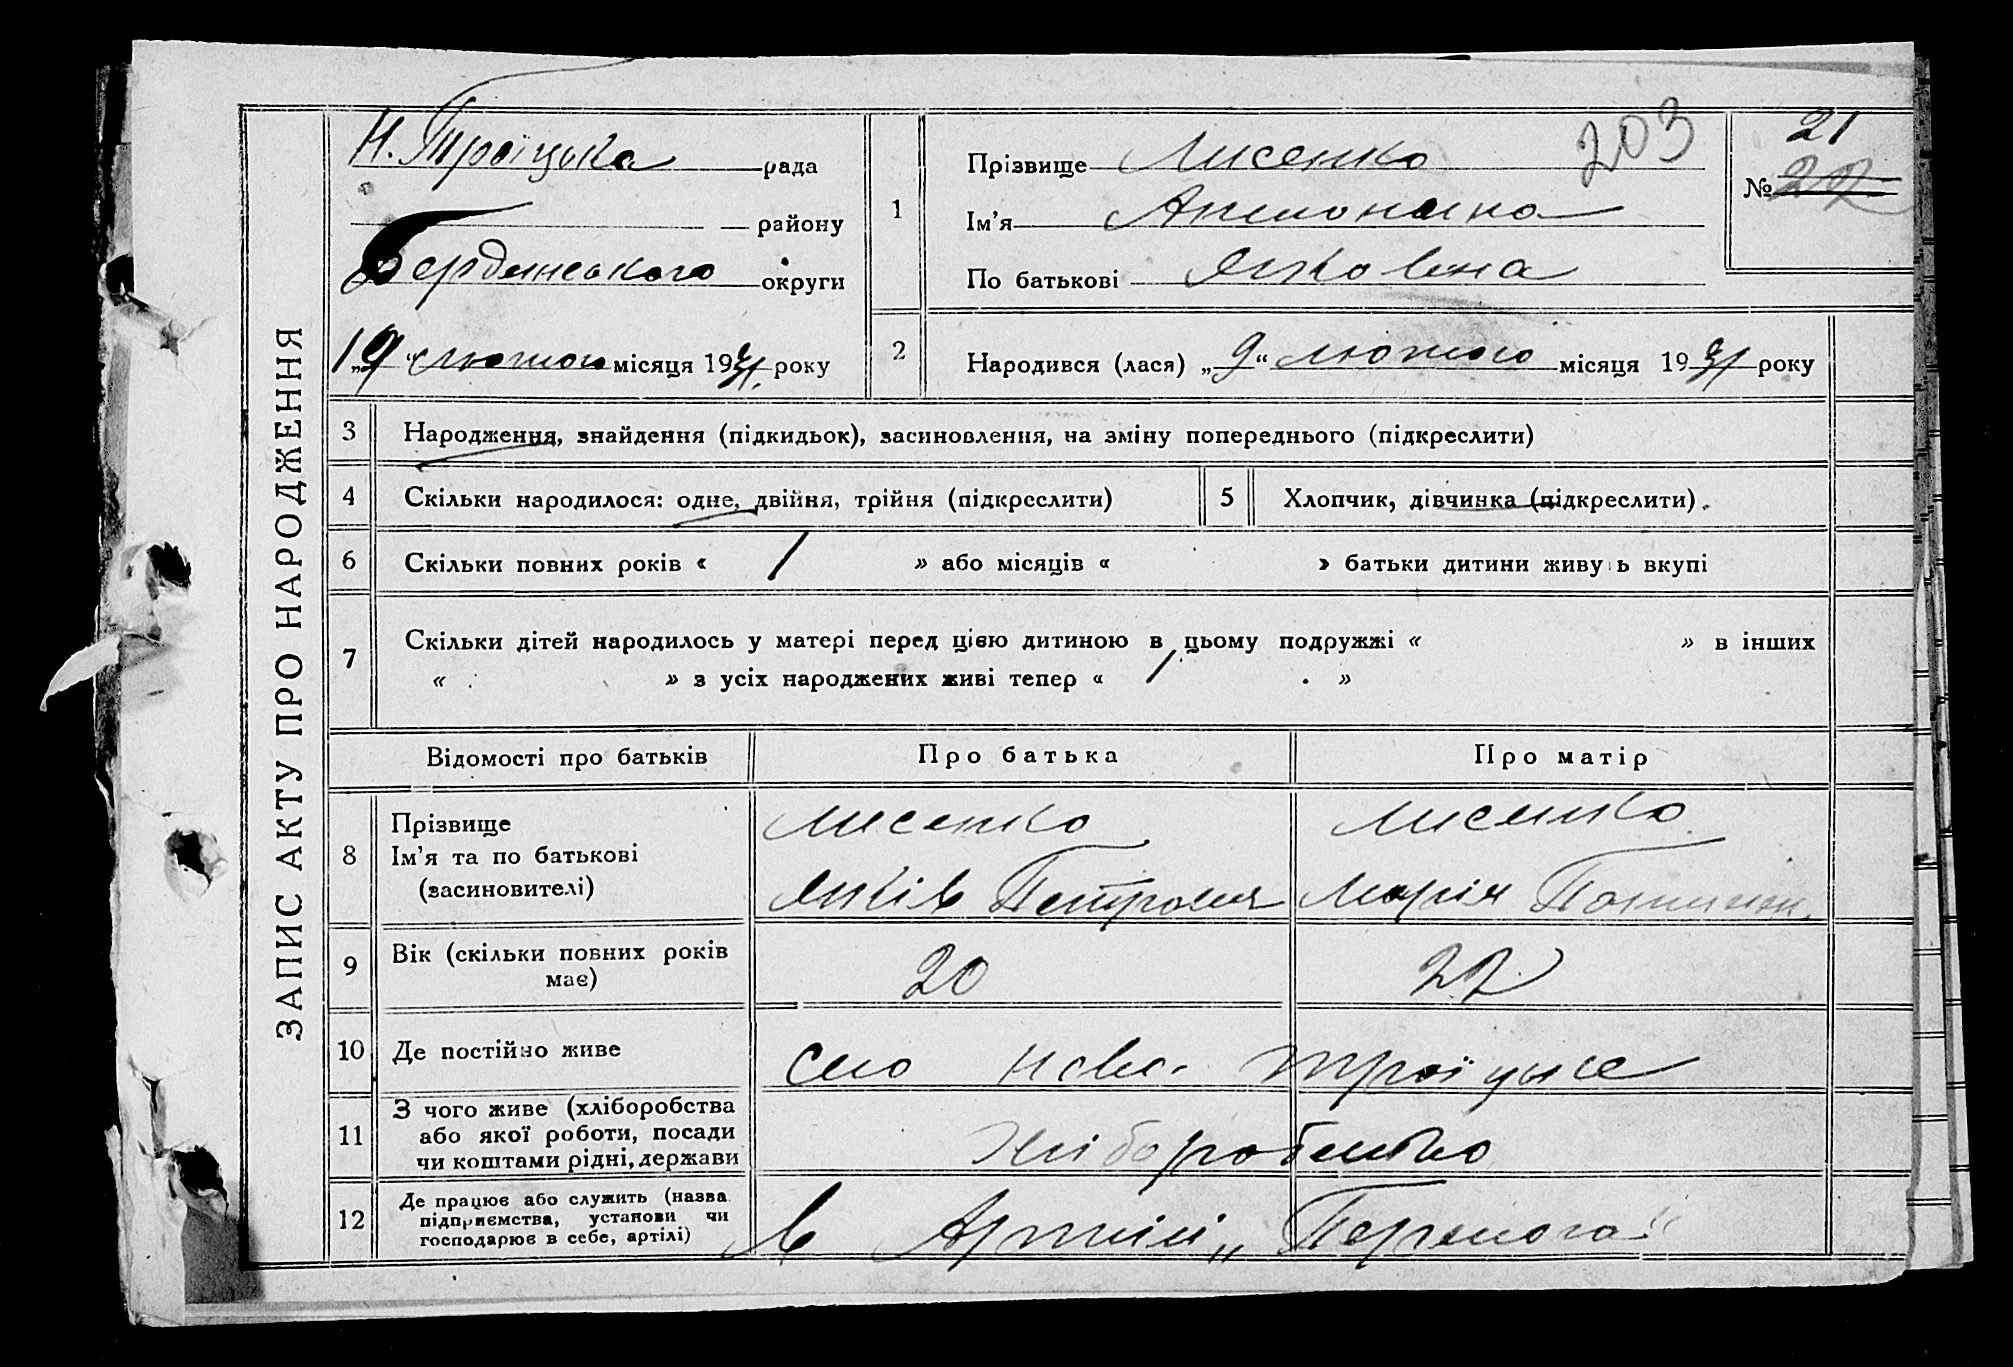 ЗАПИС АКТУ ПРО НАРОДЖЕННЯ
Н. Троїцька рада
району
Бердянського округи
„19“ лютого місяця 1931 року
1
Прізвище Лисенко
203
Ім'я
По батькові Яковівна
21
№ 22
2
Народився (лася) „9“ лютого місяця 1931 року
3 Народження, знайдення (підкидьок), засиновлення, на зміну попереднього (підкреслити)
4 Скільки народилося: одне, двійня, трійня (підкреслити)
5 Хлопчик, дівчинка (підкреслити).
6 Скільки повних років « 1 » або місяців « » батьки дитини живуть вкупі
7 Скільки дітей народилось у матері перед цією дитиною в цьому подружжі « » в інших
« » з усіх народжених живі тепер « 1 »
Відомості про батьків Про батька Про матір
8 Прізвище
Ім'я та по батькові
(засиновителі)
Лисенко
Яків Петрович
Лисенко
Марія
9 Вік (скільки повних років
має)
20
22
10 Де постійно живе
село Ново-Троїцьке
11 З чого живе (хліборобства
або якої роботи, посади
чи коштами рідні, держави
Хліборобство
12 Де працює або служить (назва
підприємства, установи чи
господарює в себе, артілі)
В Артілі „Перемога“